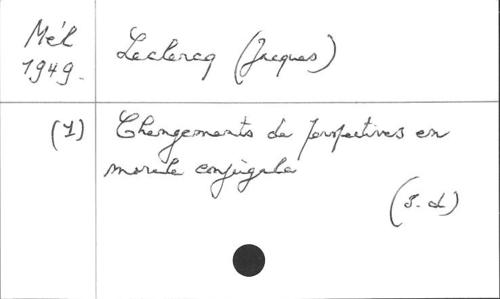 Mél
1949.
Leclercq (Jacques)
(1)
Changements de perspectives en
morale conjugale
(s.d)